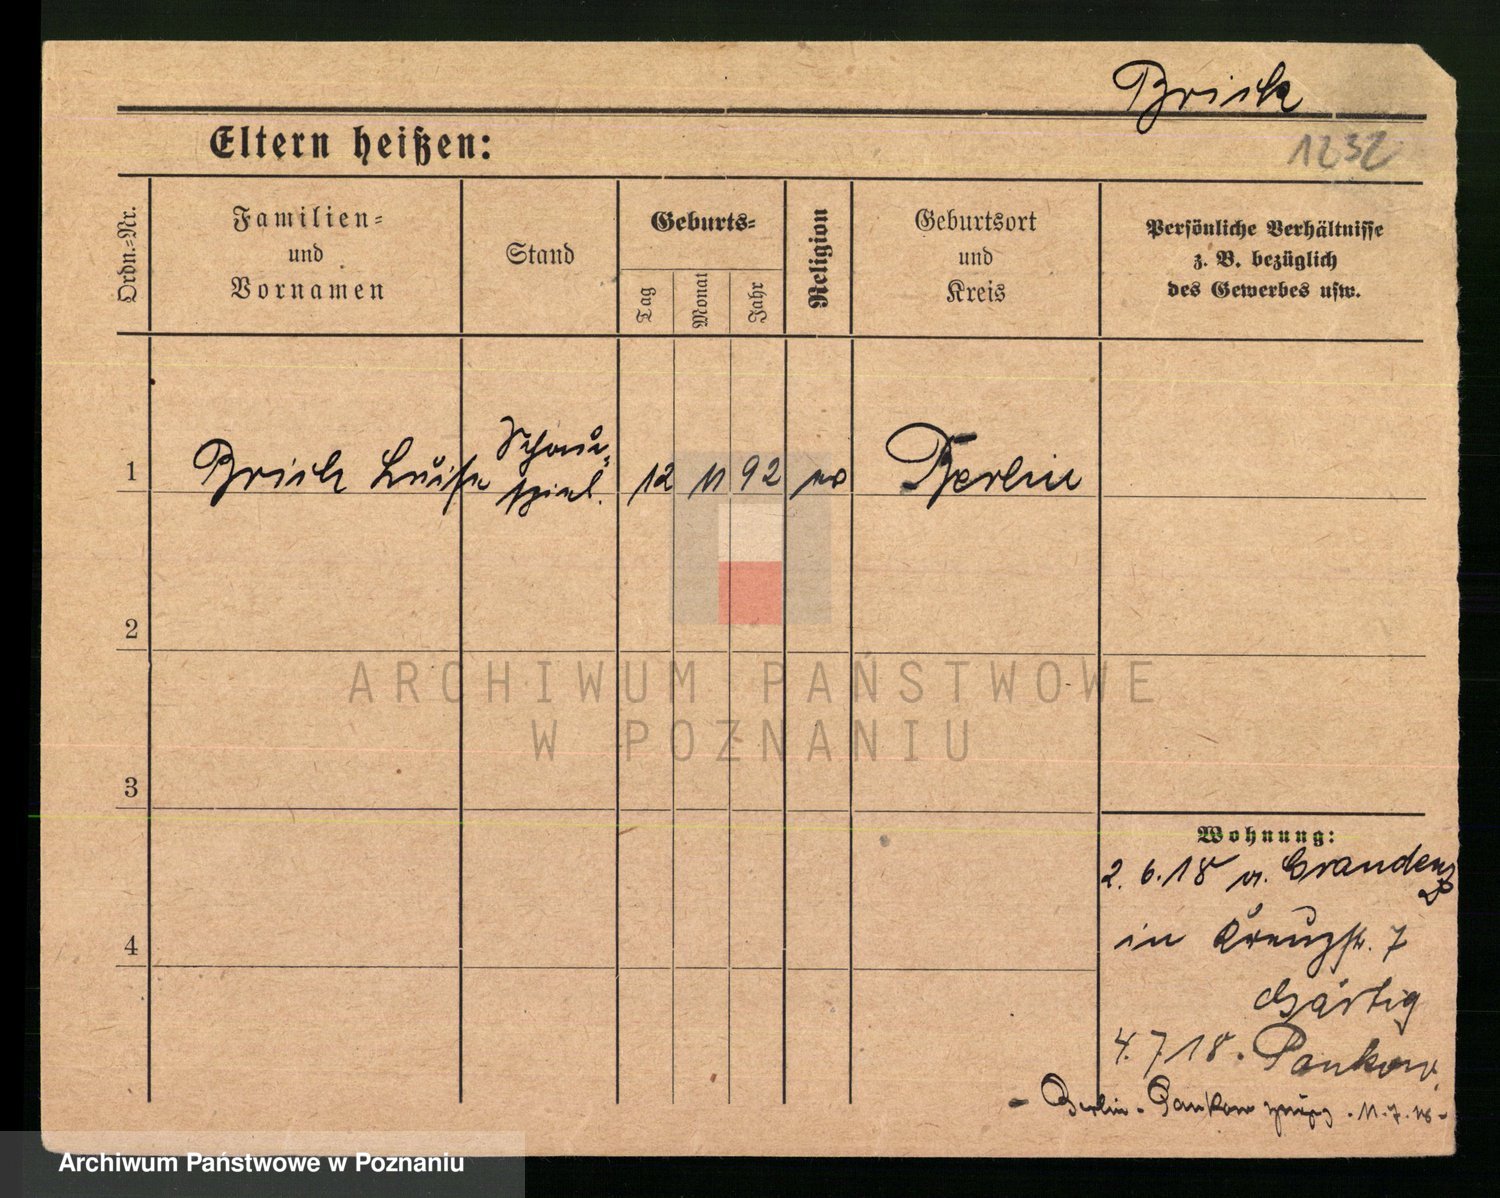 Brick
1232
Eltern heißen:
Ordn.-Nr.
Familien-
und
Vornamen
Stand
Geburts-
Tag
Monat
Jahr
Religion
Geburtsort
und
Kreis
Persönliche Verhältnisse
z. B. bezüglich
des Gewerbes usw.
1
Brick Luise
Schau-
spiel.
12
11
92
ev
Berlin
2
3
4
Wohnung:
2. 6. 18 v. Graudenz
in Kreuzstr. 7
Härtig
4. 7 18. Pankow.
- Berlin - Pankow 11. 7. 18 -
ARCHIWUM PAŃSTWOWE
W POZNANIU
Archiwum Państwowe w Poznaniu